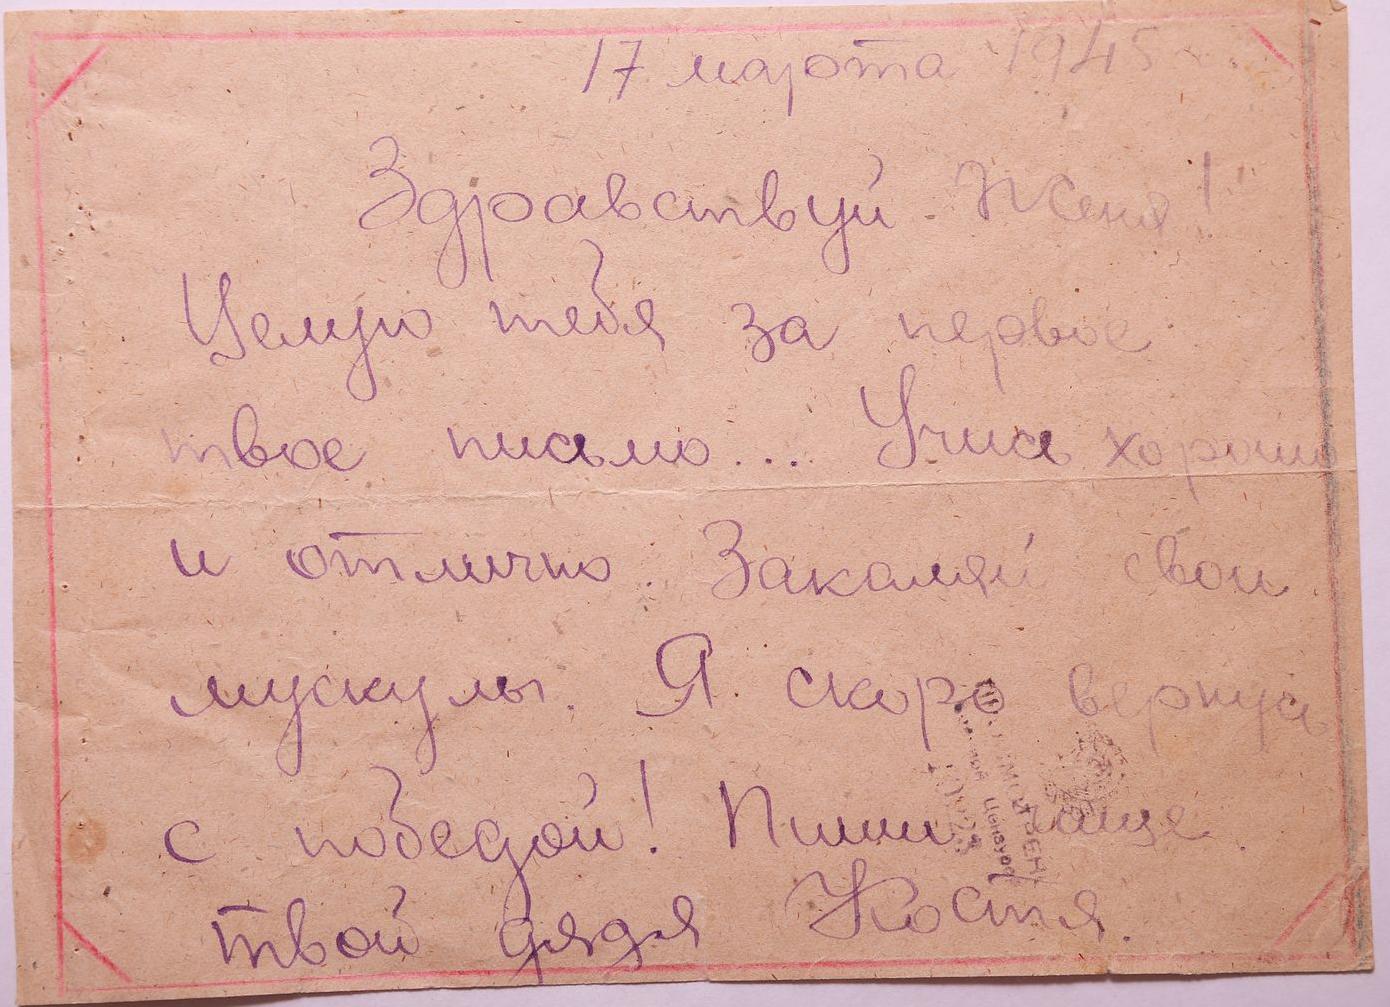 17 марта 1945 г.
Здравствуй Женя!
Целую тебя за первое
твое письмо... Учись хорошо
и отлично. Закаляй свои
мускулы. Я скоро вернусь
с победой! Пиши чаще.
Твой дядя Костя.
Просмотрено
Военной Цензурой